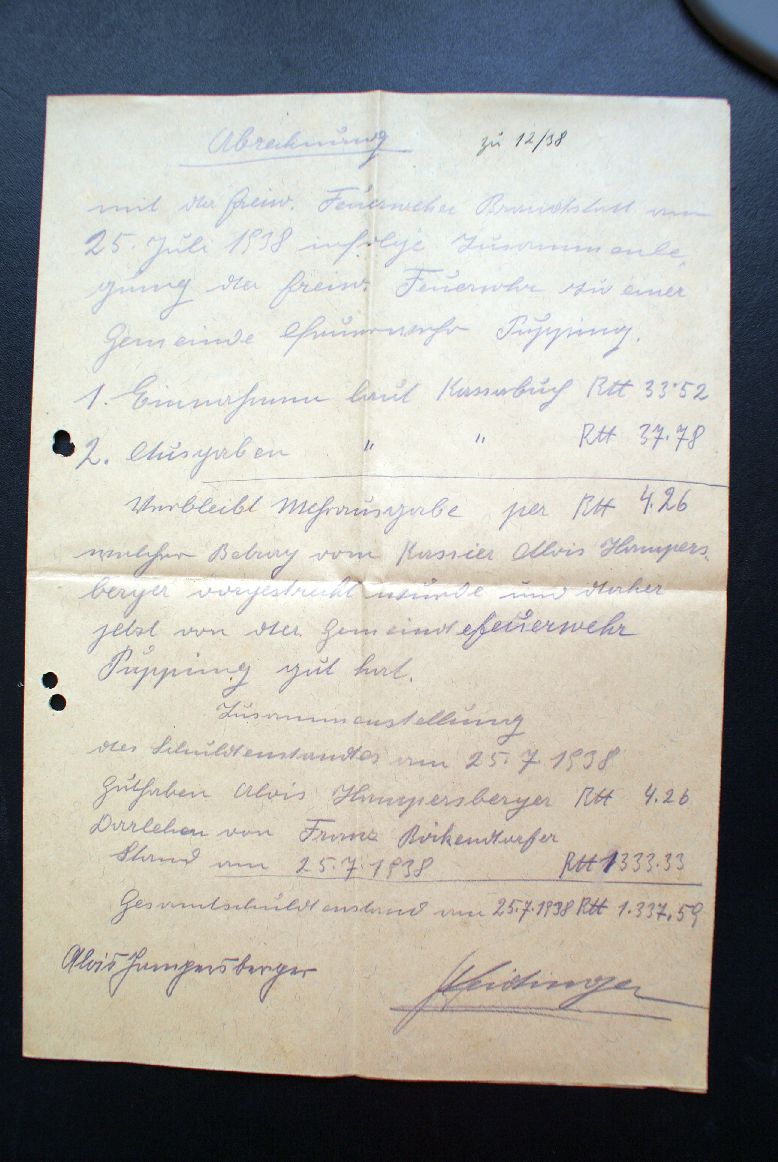 Abrechnung zu 12/38
mit der freiw. Feuerwehr Brandstatt am
25. Juli 1938 infolge Zusammenle,
gung der freiw. Feuerwehr zu einer
Gemeinde feuerwehr Pupping.
1. Einnahmen laut Kassabuch RM 33·52
2. Ausgaben " " RM 37.78
Verbleibt Mehrausgabe per RM 4.26
welcher Betrag vom Kassier Alois Hampers,
berger vorgestreckt wurde und daher
jetzt von der Gemeindefeuerwehr
Pupping gut hat.
Zusammenstellung
des Schuldenstandes am 25.7.1938
Guthaben Alois Hampersberger RM 4.26
Darlehen von Franz
Stand am 25.7.1938 RM 1333.33
Gesamtschuldenstand am 25.7.1938 RM 1.337.59
Alois Hampersberger